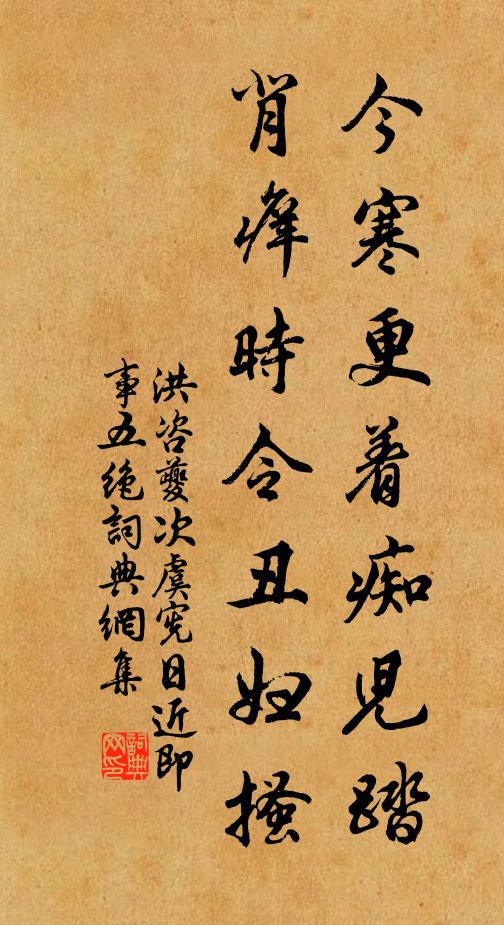 今寒更着痴児踏
背痒時令丑妇搔
洪咨夔次虞宪日近即
事五绝詞典網集
詞典网印